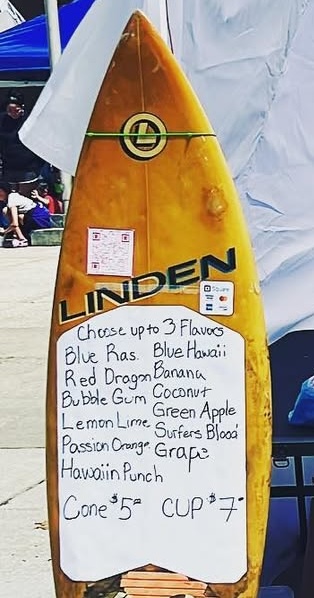 L
LINDEN
Square
Choose up to 3 Flavors
Blue Ras. Blue Hawaii
Red Dragon Banana
Bubble Gum Coconut
Lemon Lime Green Apple
Passion Orange Surfers Blood
Hawaiin Punch Grape
Cone $5 CUP $7